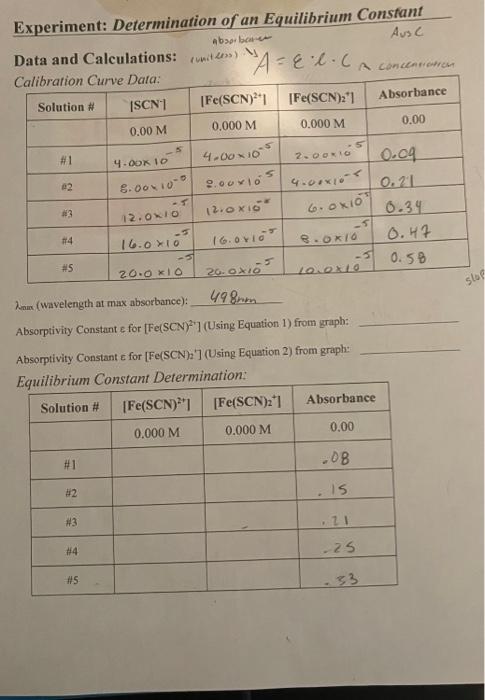 Experiment: Determination of an Equilibrium Constant
absorbance A vs C
Data and Calculations: (unitless) A = ε·l·C concentration
Calibration Curve Data:
Solution # [SCN⁻] [Fe(SCN)²⁺] [Fe(SCN)₂⁺] Absorbance
0.00 M 0.000 M 0.000 M 0.00
#1 4.00x10⁻⁵ 4.00x10⁻⁵ 2.00x10⁻⁵ 0.09
#2 8.00x10⁻⁵ 8.00x10⁻⁵ 4.00x10⁻⁵ 0.21
#3 12.0x10⁻⁵ 12.0x10⁻⁵ 6.0x10⁻⁵ 0.34
#4 16.0x10⁻⁵ 16.0x10⁻⁵ 8.0x10⁻⁵ 0.47
#5 20.0x10⁻⁵ 20.0x10⁻⁵ 10.0x10⁻⁵ 0.58
λmax (wavelength at max absorbance): 498nm
Absorptivity Constant ε for [Fe(SCN)²⁺] (Using Equation 1) from graph:
Absorptivity Constant ε for [Fe(SCN)₂⁺] (Using Equation 2) from graph:
Equilibrium Constant Determination:
Solution # [Fe(SCN)²⁺] [Fe(SCN)₂⁺] Absorbance
0.000 M 0.000 M 0.00
#1 .08
#2 .15
#3 .21
#4 .25
#5 .33